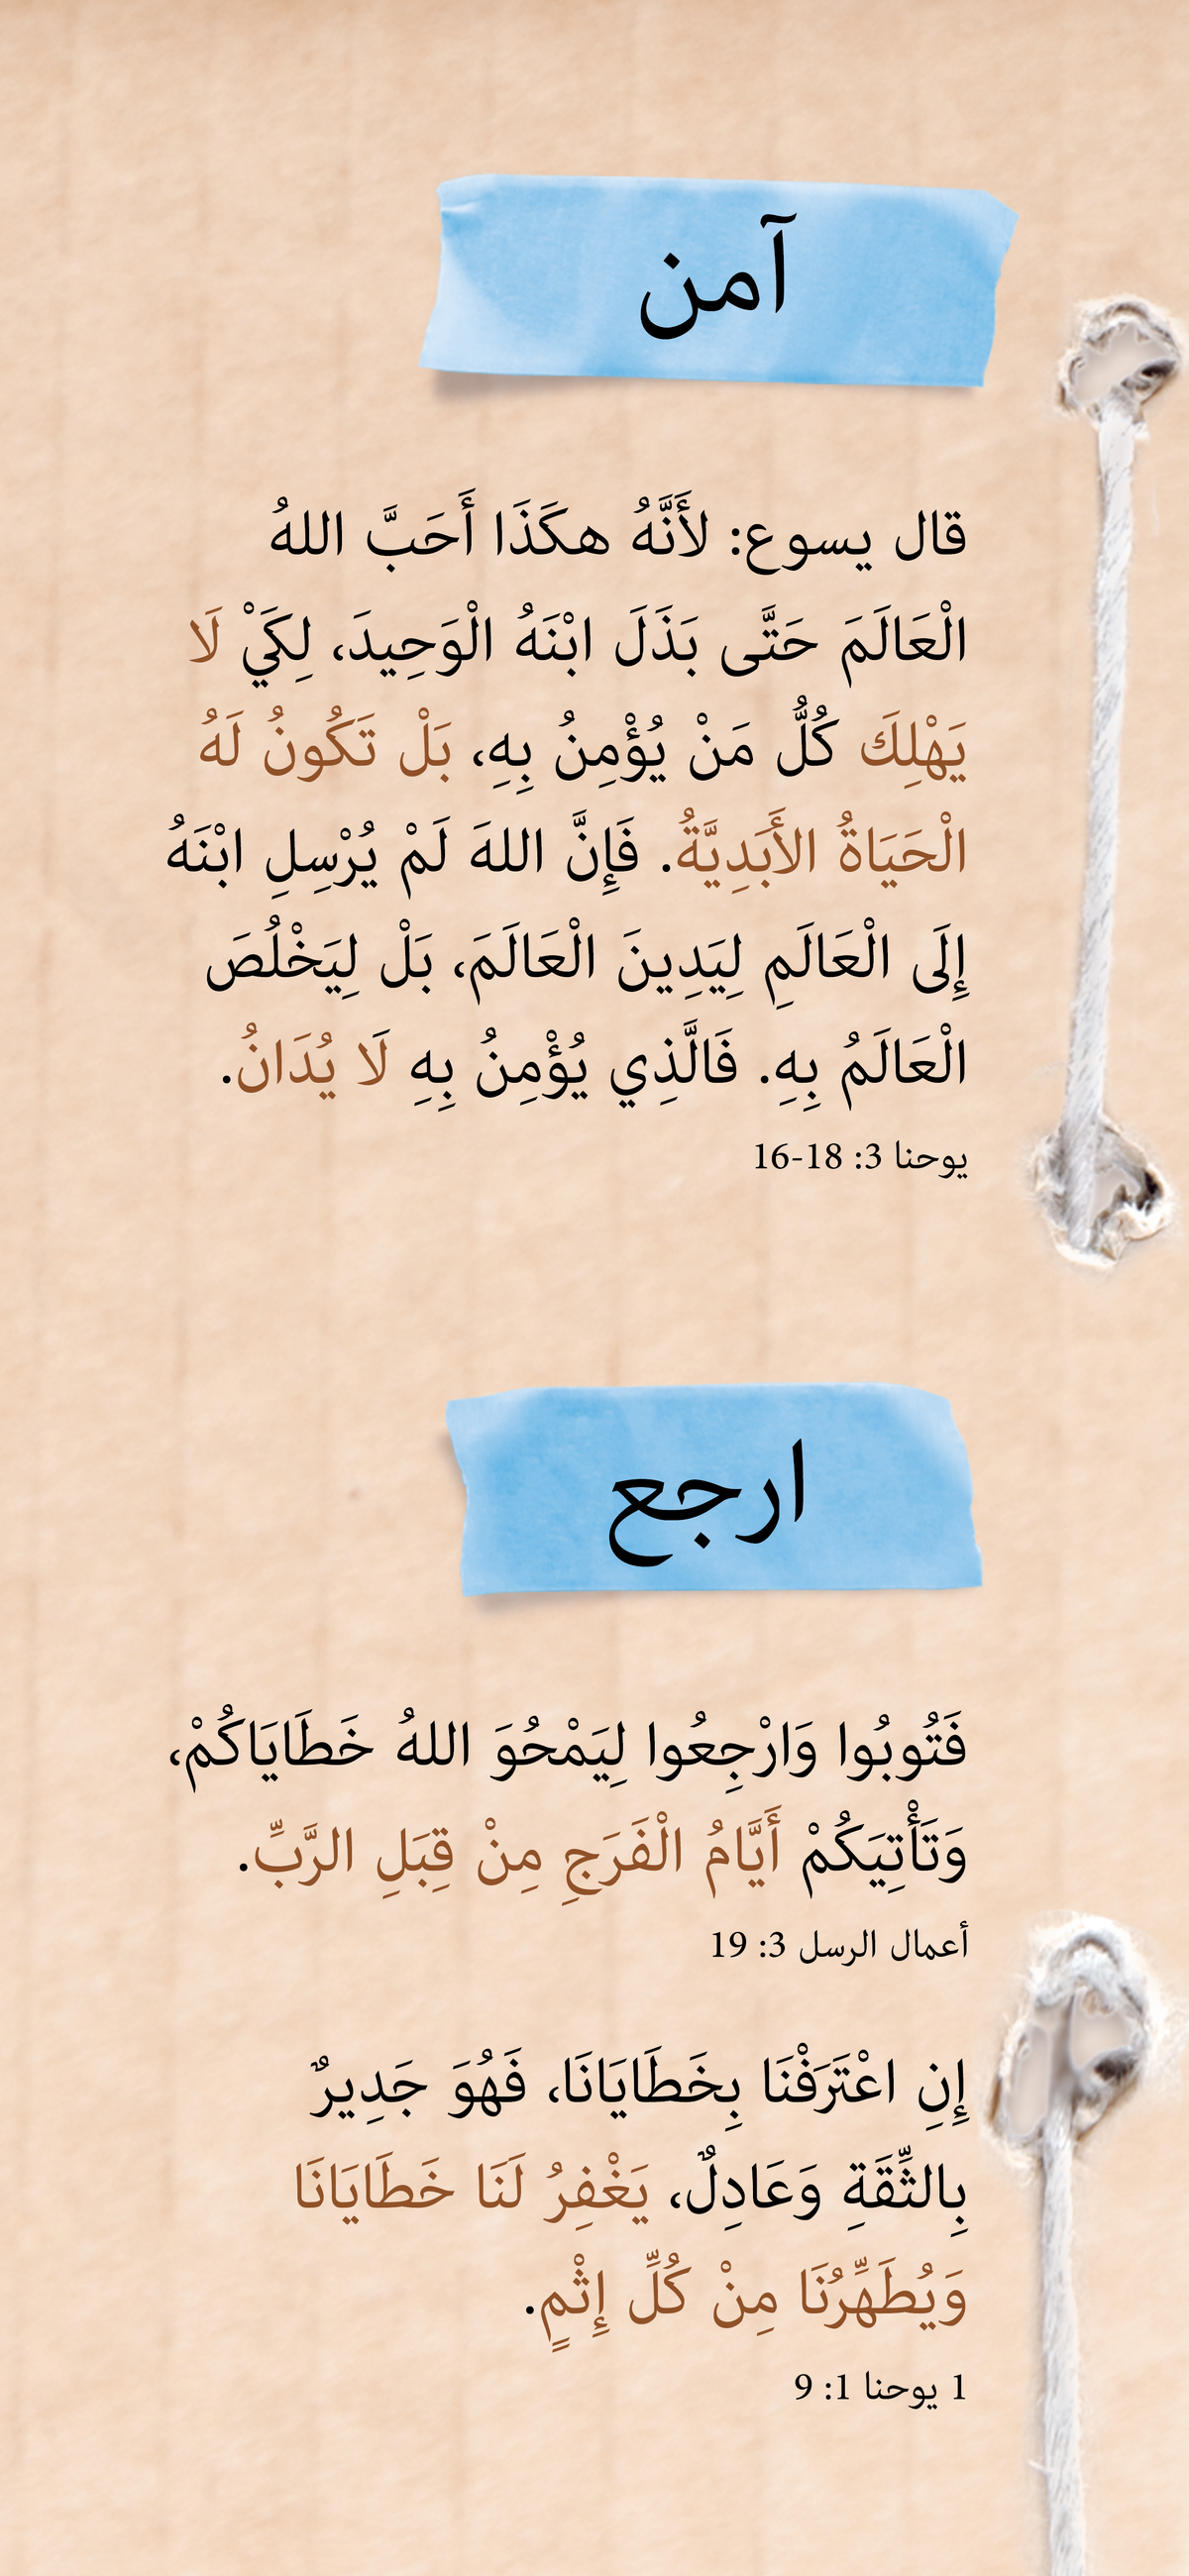 آمن
قال يسوع: لأَنَّهُ هكَذَا أَحَبَّ اللهُ
الْعَالَمَ حَتَّى بَذَلَ ابْنَهُ الْوَحِيدَ، لِكَيْ لَا
يَهْلِكَ كُلُّ مَنْ يُؤْمِنُ بِهِ، بَلْ تَكُونُ لَهُ
الْحَيَاةُ الأَبَدِيَّةُ. فَإِنَّ اللهَ لَمْ يُرْسِلِ ابْنَهُ
إِلَى الْعَالَمِ لِيَدِينَ الْعَالَمَ، بَلْ لِيَخْلُصَ
الْعَالَمُ بِهِ. فَالَّذِي يُؤْمِنُ بِهِ لَا يُدَانُ.
يوحنا 3: 16-18
ارجع
فَتُوبُوا وَارْجِعُوا لِيَمْحُوَ اللهُ خَطَايَاكُمْ،
وَتَأْتِيَكُمْ أَيَّامُ الْفَرَجِ مِنْ قِبَلِ الرَّبِّ.
أعمال الرسل 3: 19
إِنِ اعْتَرَفْنَا بِخَطَايَانَا، فَهُوَ جَدِيرٌ
بِالثِّقَةِ وَعَادِلٌ، يَغْفِرُ لَنَا خَطَايَانَا
وَيُطَهِّرُنَا مِنْ كُلِّ إِثْمٍ.
1 يوحنا 1: 9